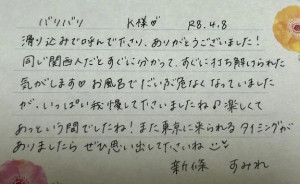 バリバリ K様♡ R8.4.8
滑り込みで呼んで下さり、ありがとうございました!
同じ関西人だとすぐに分かって、すぐに打ち解けられた
気がします♥ お風呂でだいぶ危なくなっていました
が、いっぱい我慢してくださいましたね♪楽しくて
あっという間でしたね!また東京に来られるタイミングが
ありましたら ぜひ思い出してくださいね
新條 すみれ